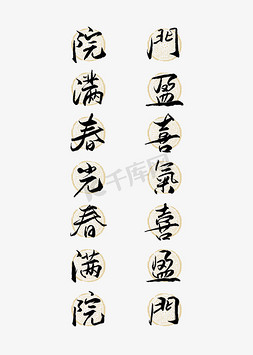 門盈喜氣喜盈門
院满春光春满院
千库网